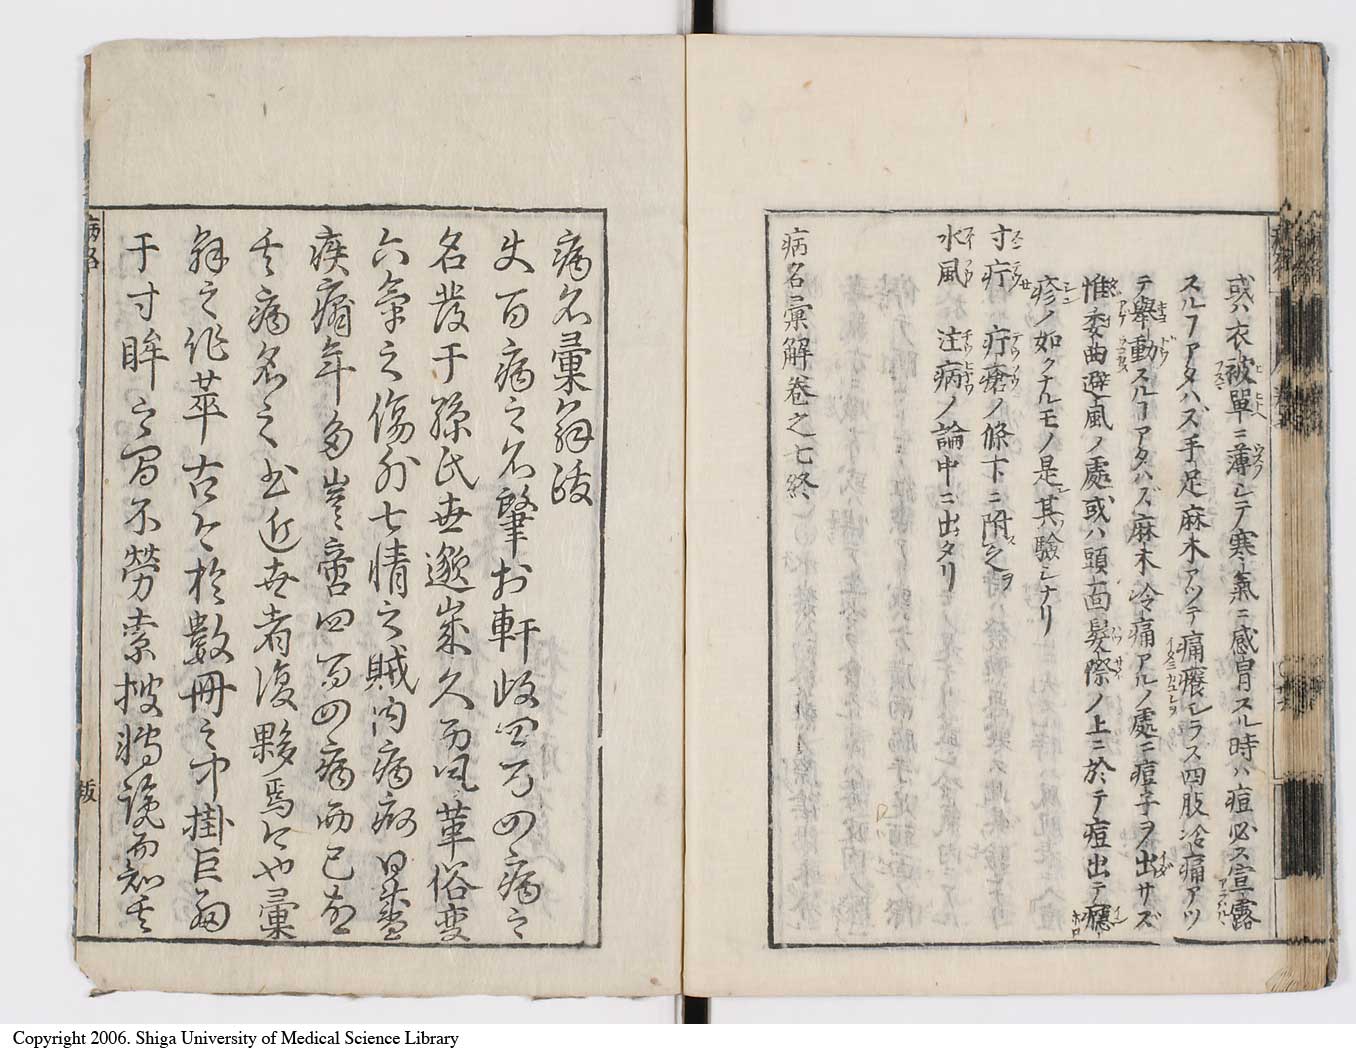 或ハ衣被單ニ薄シテ寒氣ニ感冒スル時ハ痘必ス宣露
スルヿアタハズ手足麻木アツテ痛癢シラス四肢冷痛アツ
テ舉動スルヿアタハズ麻木冷痛アルノ處ニ痘子ヲ出サズ
惟委曲避風ノ處或ハ頭面髮際ノ上ニ於テ痘出テ癮
疹ノ如クナルモノ是其驗シナリ
寸疔 疔瘡ノ條下ニ附之
水風 注病ノ論中ニ出タリ
病名彙解卷之七終
病名彙解跋
夫百病之名肇於軒岐四百四病之
名發于孫氏世邈歲久而風革俗變
六氣之傷外七情之賊內病
疾痾年多豈啻四百四病而已
病名之書近世者復夥焉今也彙
解之作萃古今於數冊之中掛巨細
于寸眸之間不勞索搜博識而知
病名
板
Copyright 2006. Shiga University of Medical Science Library